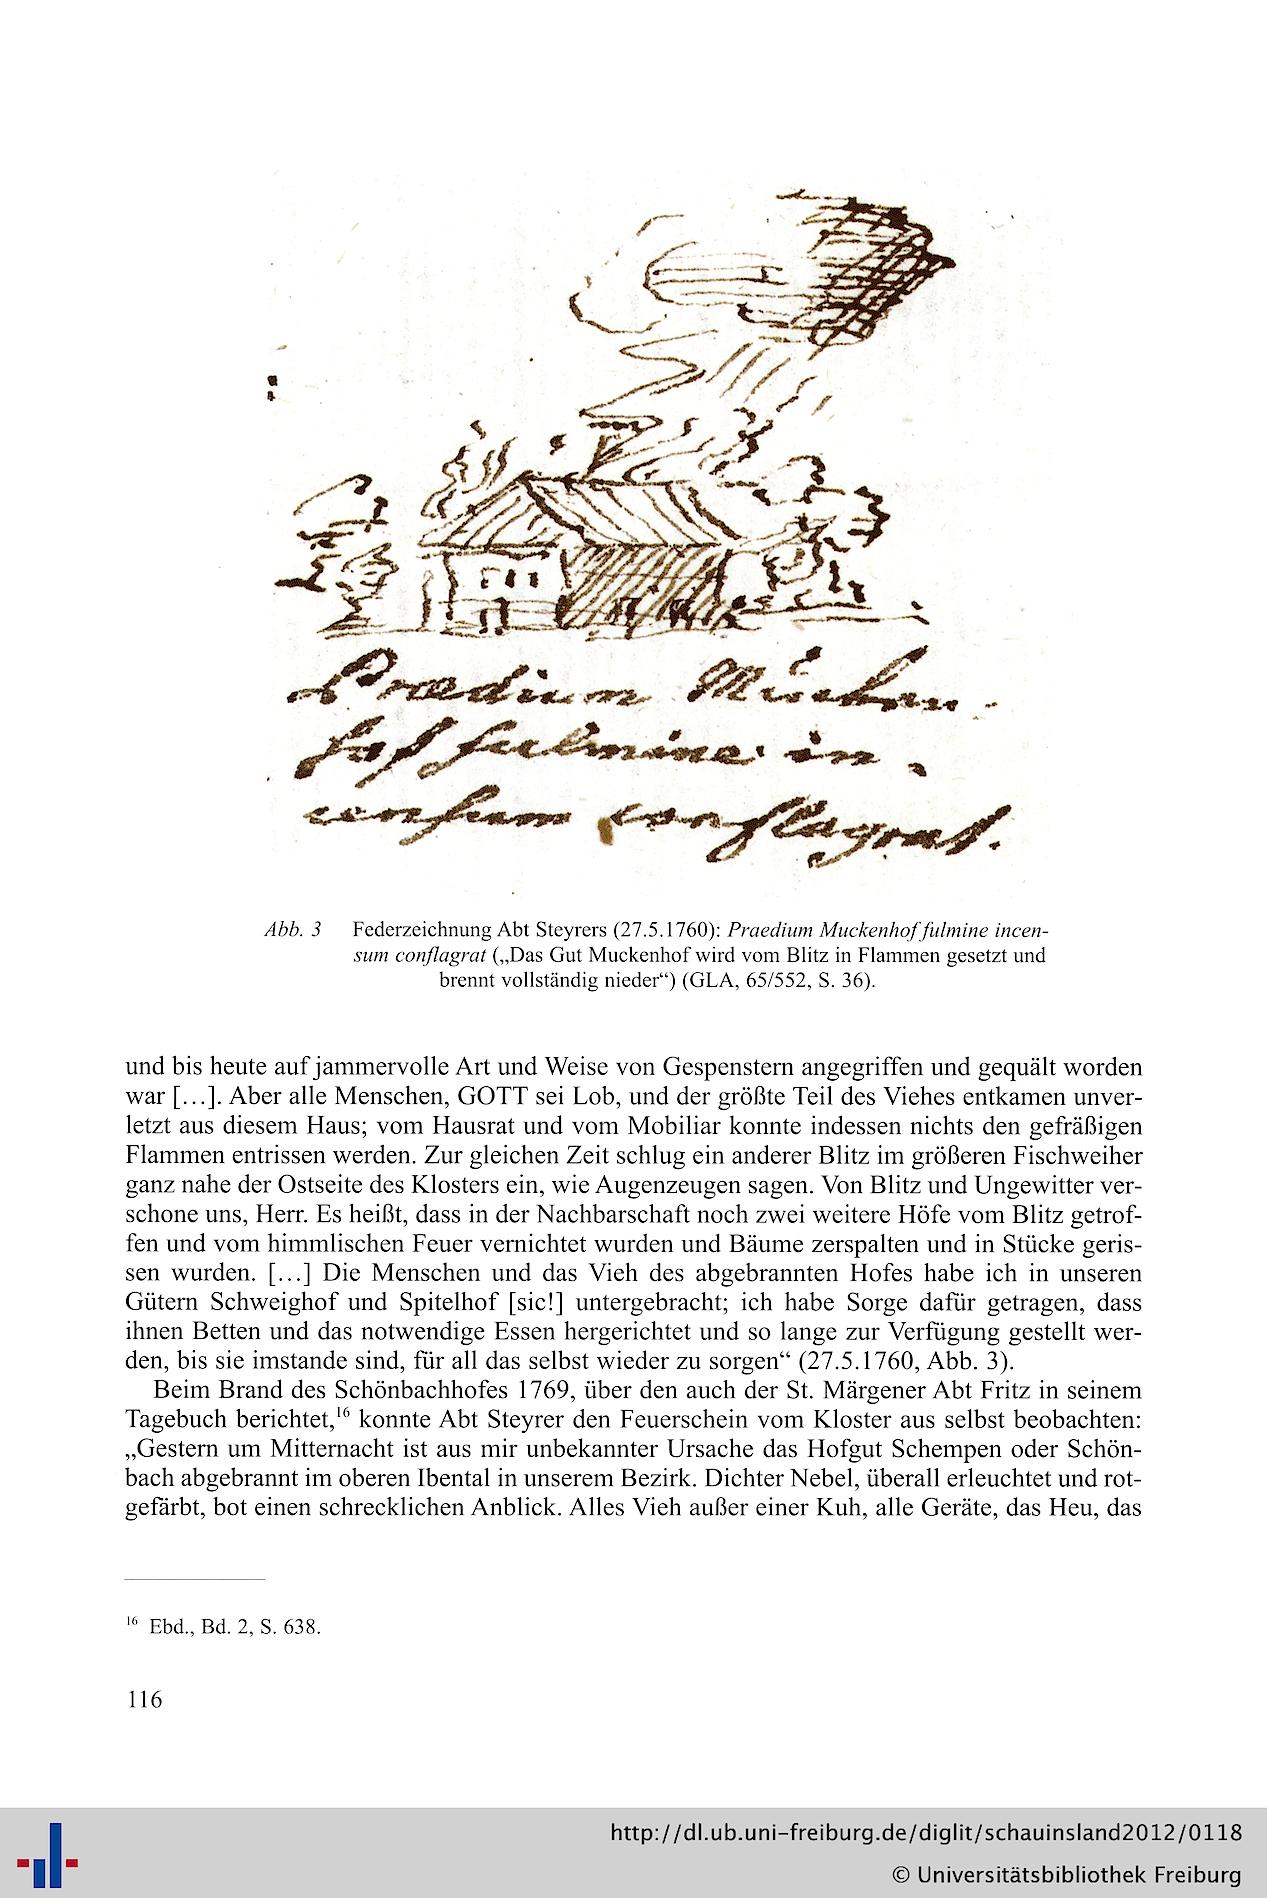 Praedium Mucken-
hof fulmine in-
censum conflagrat.
Abb. 3 Federzeichnung Abt Steyrers (27.5.1760): Praedium Muckenhof fulmine incen-
sum conflagrat („Das Gut Muckenhof wird vom Blitz in Flammen gesetzt und
brennt vollständig nieder“) (GLA, 65/552, S. 36).
und bis heute auf jammervolle Art und Weise von Gespenstern angegriffen und gequält worden
war […]. Aber alle Menschen, GOTT sei Lob, und der größte Teil des Viehes entkamen unver-
letzt aus diesem Haus; vom Hausrat und vom Mobiliar konnte indessen nichts den gefräßigen
Flammen entrissen werden. Zur gleichen Zeit schlug ein anderer Blitz im größeren Fischweiher
ganz nahe der Ostseite des Klosters ein, wie Augenzeugen sagen. Von Blitz und Ungewitter ver-
schone uns, Herr. Es heißt, dass in der Nachbarschaft noch zwei weitere Höfe vom Blitz getrof-
fen und vom himmlischen Feuer vernichtet wurden und Bäume zerspalten und in Stücke geris-
sen wurden. […] Die Menschen und das Vieh des abgebrannten Hofes habe ich in unseren
Gütern Schweighof und Spitelhof [sic!] untergebracht; ich habe Sorge dafür getragen, dass
ihnen Betten und das notwendige Essen hergerichtet und so lange zur Verfügung gestellt wer-
den, bis sie imstande sind, für all das selbst wieder zu sorgen“ (27.5.1760, Abb. 3).
Beim Brand des Schönbachhofes 1769, über den auch der St. Märgener Abt Fritz in seinem
Tagebuch berichtet,¹⁶ konnte Abt Steyrer den Feuerschein vom Kloster aus selbst beobachten:
„Gestern um Mitternacht ist aus mir unbekannter Ursache das Hofgut Schempen oder Schön-
bach abgebrannt im oberen Ibental in unserem Bezirk. Dichter Nebel, überall erleuchtet und rot-
gefärbt, bot einen schrecklichen Anblick. Alles Vieh außer einer Kuh, alle Geräte, das Heu, das
¹⁶ Ebd., Bd. 2, S. 638.
116
http://dl.ub.uni-freiburg.de/diglit/schauinsland2012/0118
© Universitätsbibliothek Freiburg